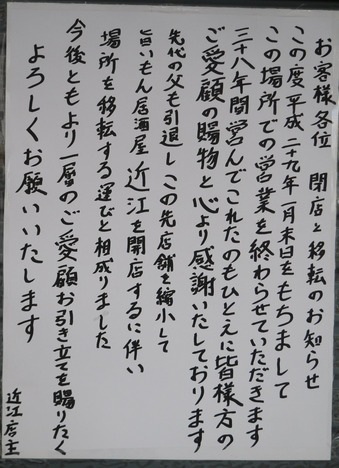 お客様各位　閉店と移転のお知らせ
この度平成二十九年一月末日をもちまして
この場所での営業を終わらせていただきます
三十八年間営んでこれたのもひとえに皆様方の
ご愛顧の賜物と心より感謝いたしております
先代の父も引退しこの先店舗を縮小して
旨いもん居酒屋 近江を開店するに伴い
場所を移転する運びと相成りました
今後ともより一層のご愛顧お引き立てを賜りたく
よろしくお願いいたします
近江店主